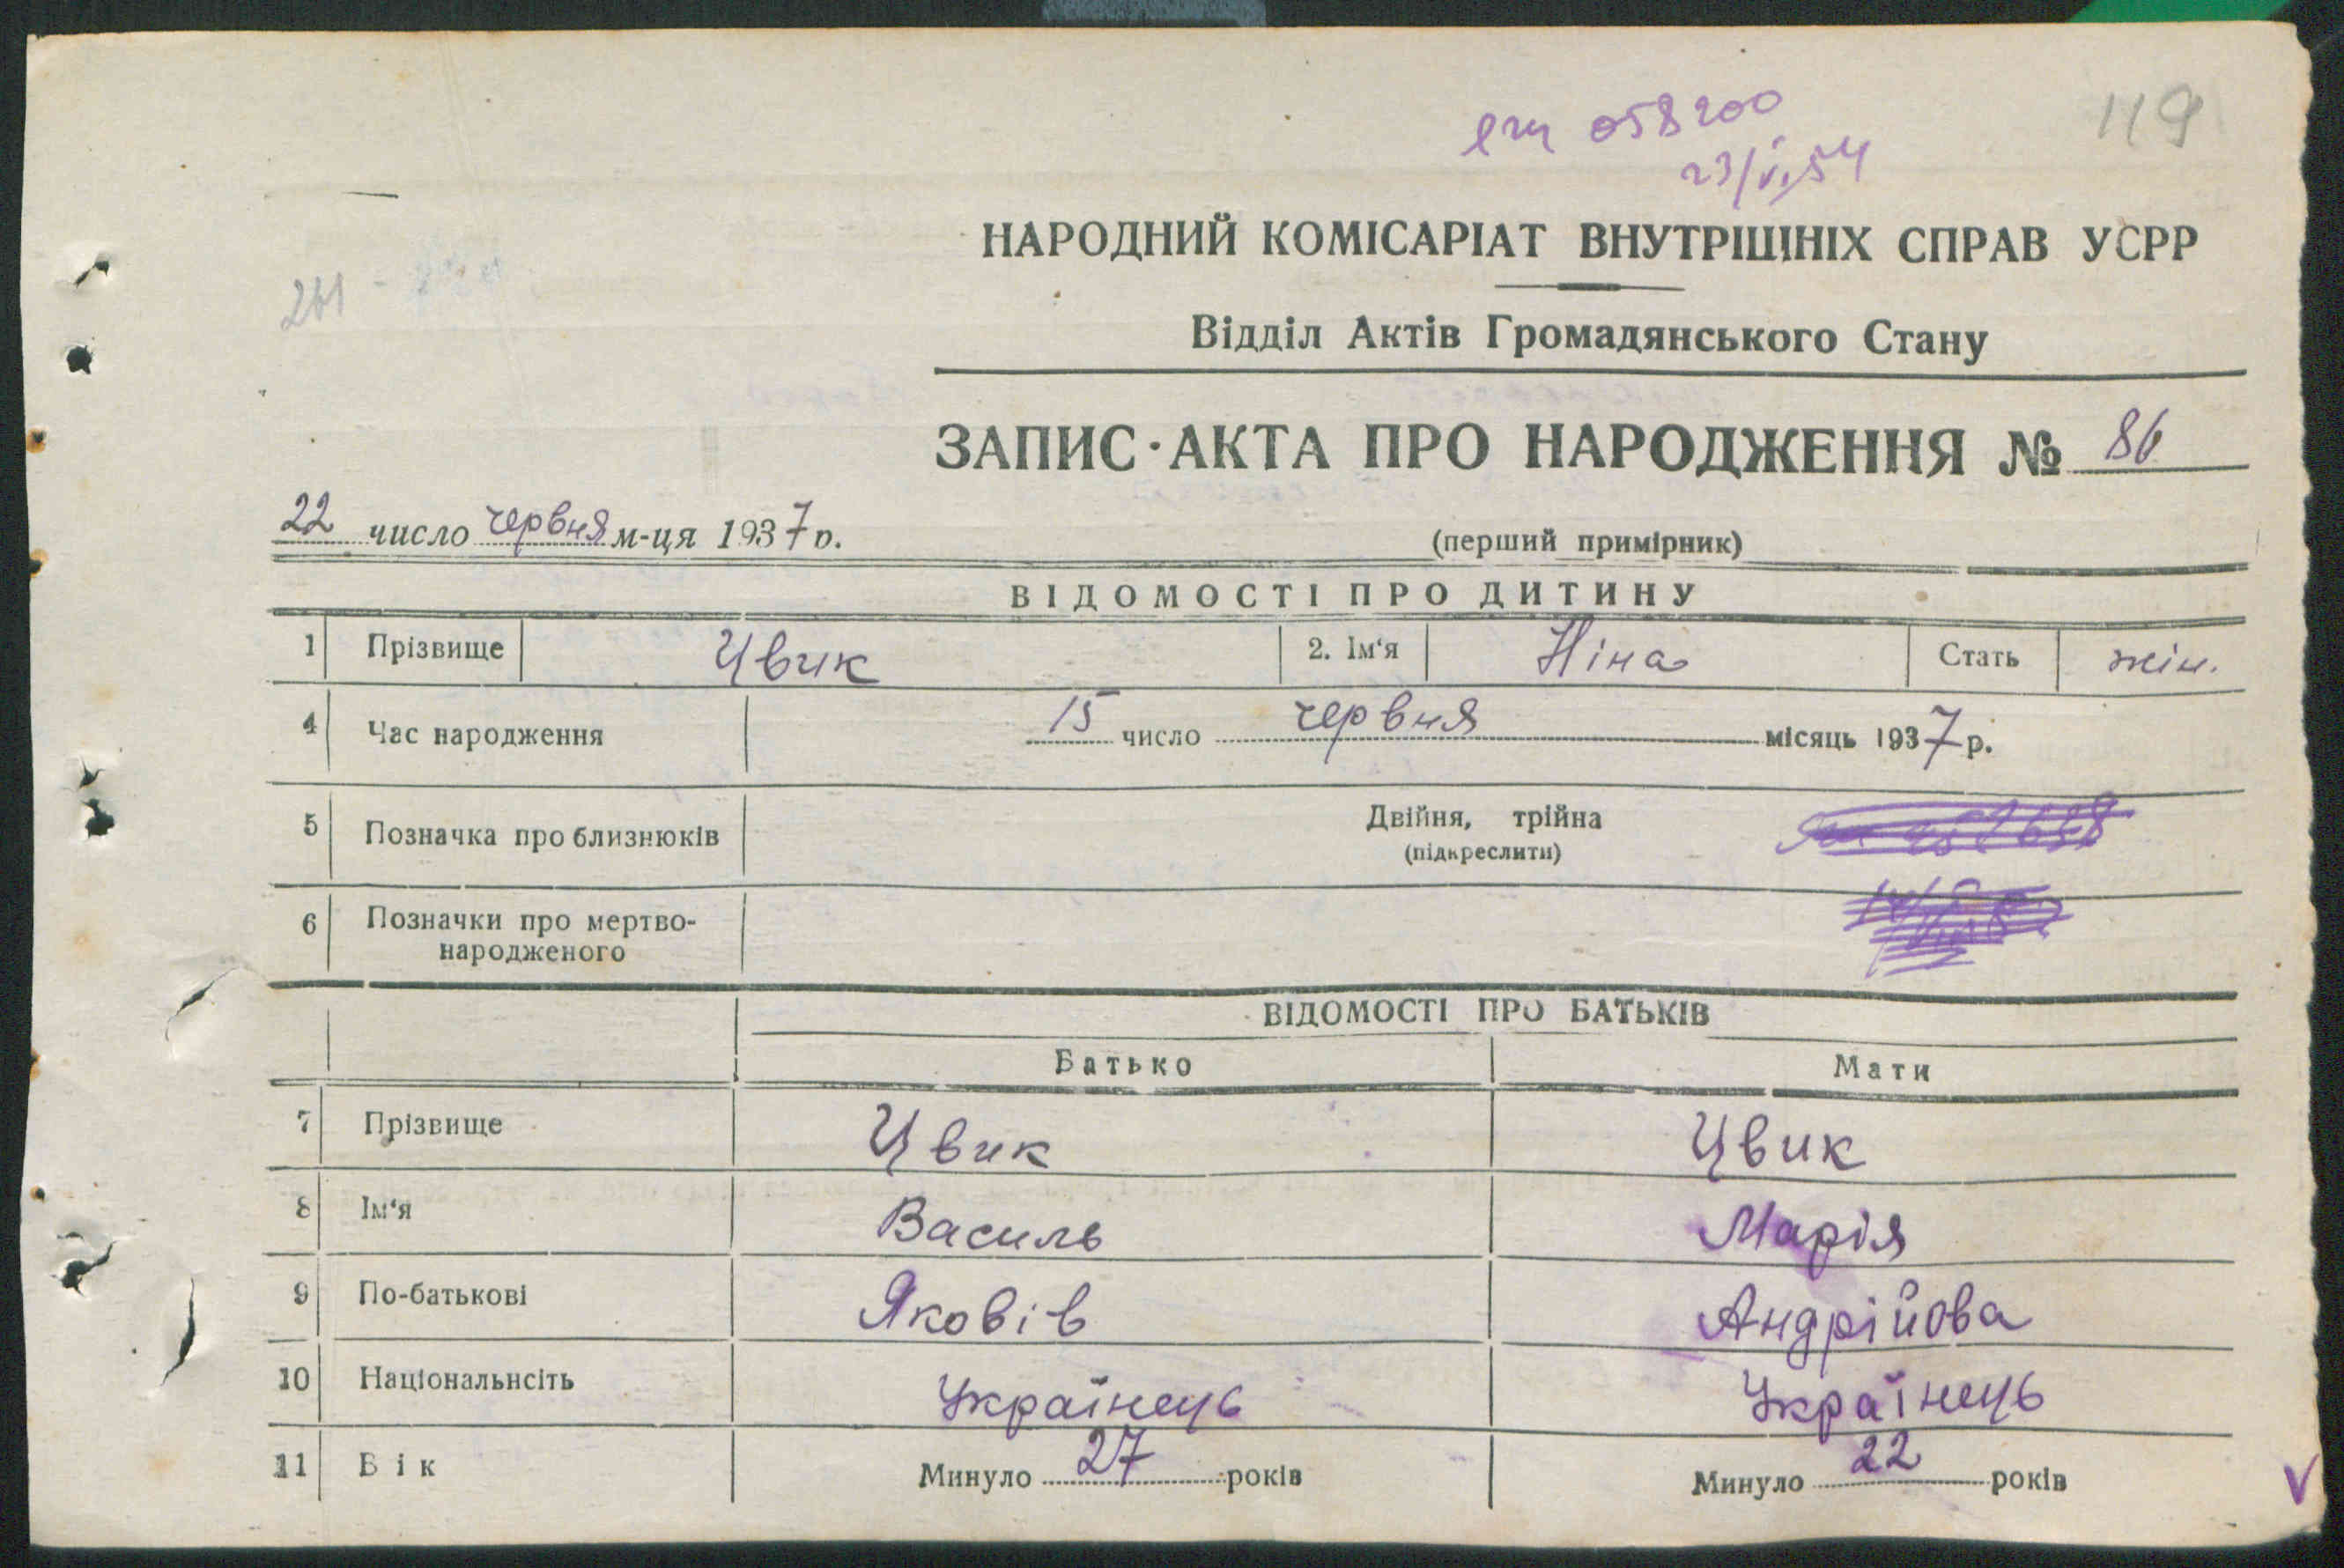 058200
119
23/VI 54
НАРОДНИЙ КОМІСАРІАТ ВНУТРІШНІХ СПРАВ УСРР
261 -
Відділ Актів Громадянського Стану
ЗАПИС·АКТА ПРО НАРОДЖЕННЯ № 86
22 число червня м-ця 1937 р.
(перший примірник)
ВІДОМОСТІ ПРО ДИТИНУ
1 Прізвище Цвик 2. Ім'я Ніна Стать жін.
4 Час народження 15 число червня місяць 1937 р.
5 Позначка про близнюків Двійня, трійна
(підкреслити)
6 Позначки про мертво-
народженого
ВІДОМОСТІ ПРО БАТЬКІВ
Батько Мати
7 Прізвище Цвик Цвик
8 Ім'я Василь Марія
9 По-батькові Яковів Андрійова
10 Національнсіть Українець Українець
11 Вік Минуло 27 років Минуло 22 років